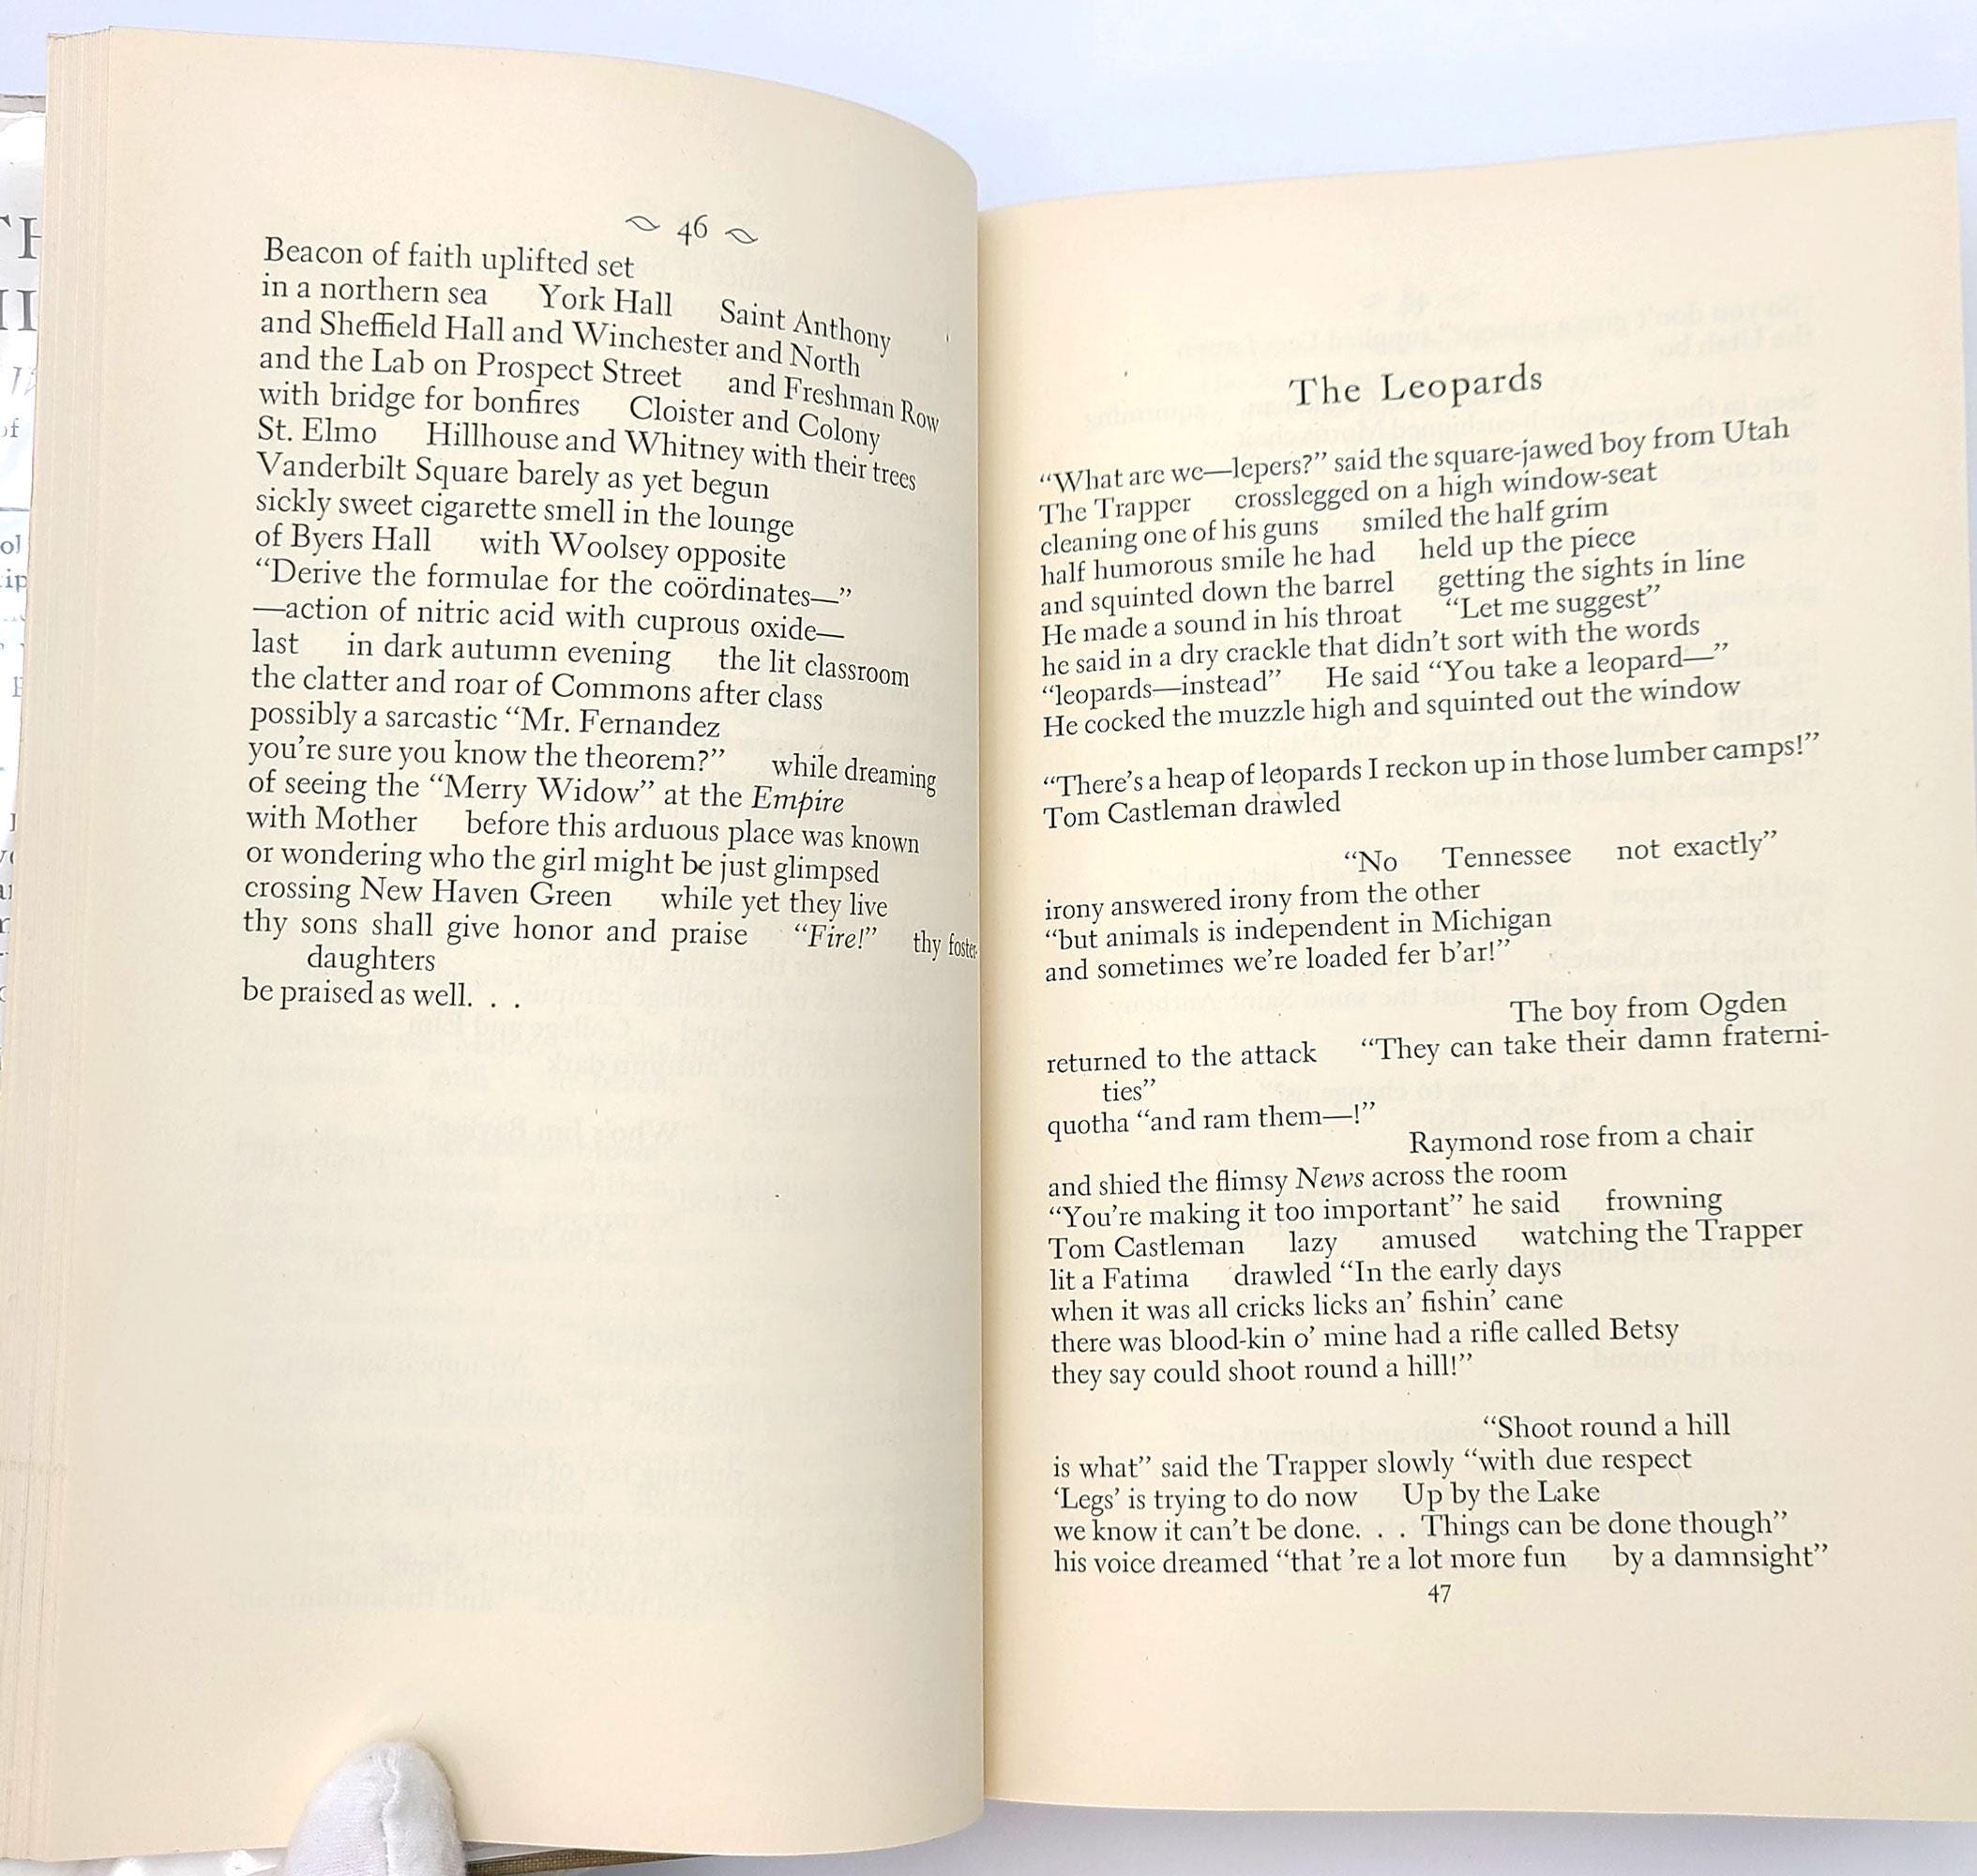 46
Beacon of faith uplifted set
in a northern sea York Hall Saint Anthony
and Sheffield Hall and Winchester and North
and the Lab on Prospect Street and Freshman Row
with bridge for bonfires Cloister and Colony
St. Elmo Hillhouse and Whitney with their trees
Vanderbilt Square barely as yet begun
sickly sweet cigarette smell in the lounge
of Byers Hall with Woolsey opposite
“Derive the formulae for the coördinates—”
—action of nitric acid with cuprous oxide—
last in dark autumn evening the lit classroom
the clatter and roar of Commons after class
possibly a sarcastic “Mr. Fernandez
you’re sure you know the theorem?” while dreaming
of seeing the “Merry Widow” at the Empire
with Mother before this arduous place was known
or wondering who the girl might be just glimpsed
crossing New Haven Green while yet they live
thy sons shall give honor and praise “Fire!” thy foster-
daughters
be praised as well. . .
The Leopards
“What are we—lepers?” said the square-jawed boy from Utah
The Trapper crosslegged on a high window-seat
cleaning one of his guns smiled the half grim
half humorous smile he had held up the piece
and squinted down the barrel getting the sights in line
He made a sound in his throat “Let me suggest”
he said in a dry crackle that didn’t sort with the words
“leopards—instead” He said “You take a leopard—”
He cocked the muzzle high and squinted out the window
“There’s a heap of leopards I reckon up in those lumber camps!”
Tom Castleman drawled
“No Tennessee not exactly”
irony answered irony from the other
“but animals is independent in Michigan
and sometimes we’re loaded fer b’ar!”
The boy from Ogden
returned to the attack “They can take their damn fraterni-
ties”
quotha “and ram them—!”
Raymond rose from a chair
and shied the flimsy News across the room
“You’re making it too important” he said frowning
Tom Castleman lazy amused watching the Trapper
lit a Fatima drawled “In the early days
when it was all cricks licks an’ fishin’ cane
there was blood-kin o’ mine had a rifle called Betsy
they say could shoot round a hill!”
“Shoot round a hill
is what” said the Trapper slowly “with due respect
‘Legs’ is trying to do now Up by the Lake
we know it can’t be done. . . Things can be done though”
his voice dreamed “that ’re a lot more fun by a damnsight”
47